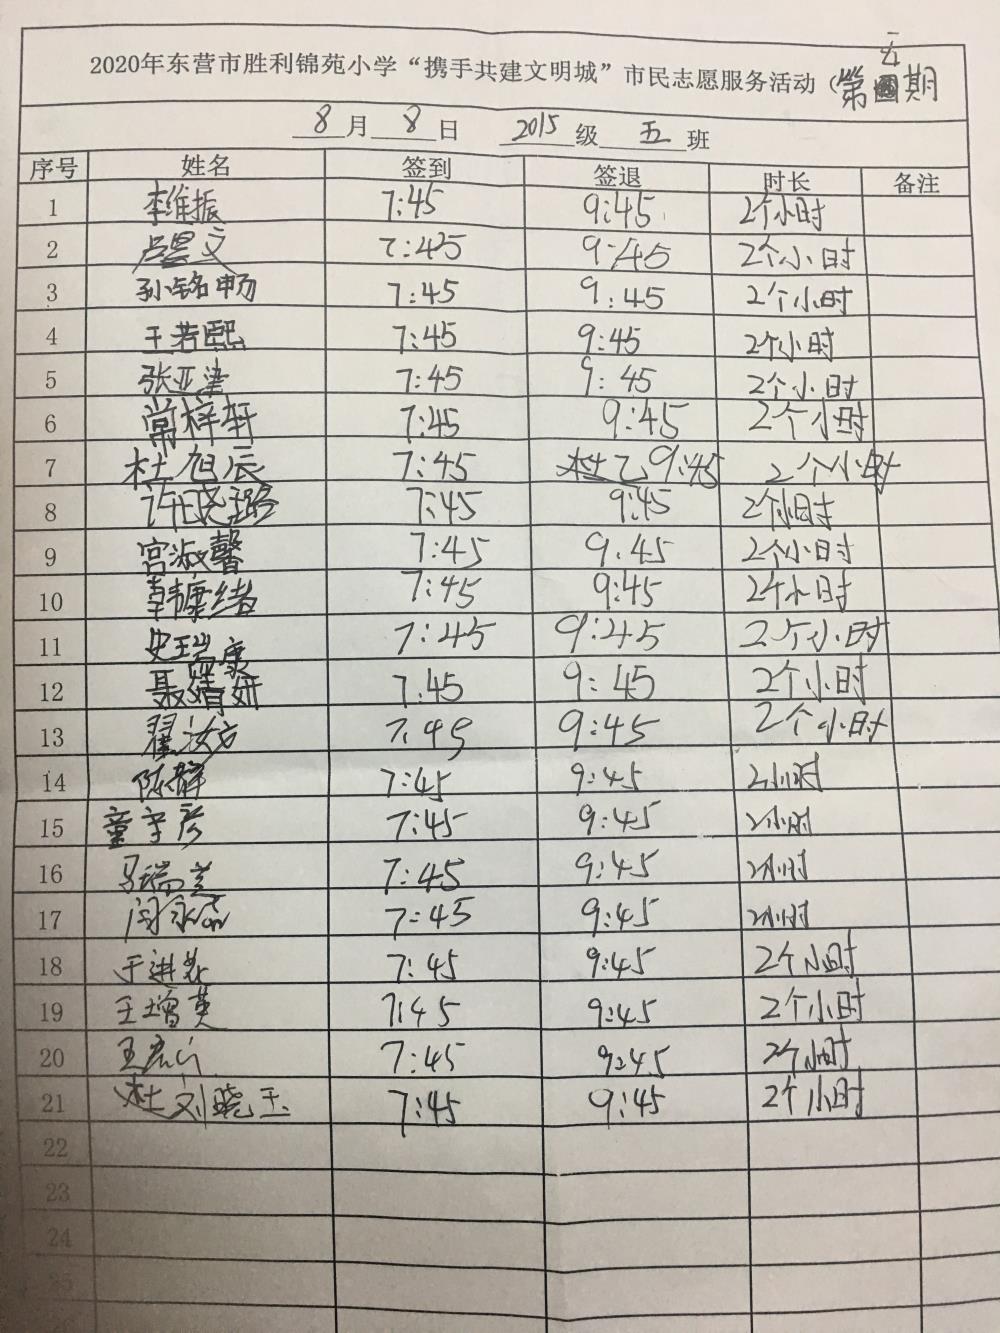 2020年东营市胜利锦苑小学“携手共建文明城”市民志愿服务活动（第五期
8月8日 2015级五班
序号 姓名 签到 签退 时长 备注
1 李维振 7:45 9:45 2个小时
2 吕昱文 7:45 9:45 2个小时
3 孙铭畅 7:45 9:45 2个小时
4 王若熙 7:45 9:45 2个小时
5 张亚津 7:45 9:45 2个小时
6 常梓轩 7:45 9:45 2个小时
7 杜旭辰 7:45 9:45 2个小时
8 许晓璐 7:45 9:45 2个小时
9 宫淑馨 7:45 9:45 2个小时
10 韩 绪 7:45 9:45 2个小时
11 史瑞康 7:45 9:45 2个小时
12 聂婧妍 7:45 9:45 2个小时
13 翟汝方 7:45 9:45 2个小时
14 陈静 7:45 9:45 2小时
15 童守彦 7:45 9:45 2小时
16 马瑞兰 7:45 9:45 2小时
17 闫 7:45 9:45 2小时
18 于进 7:45 9:45 2个小时
19 王增英 7:45 9:45 2个小时
20 王 7:45 9:45 2个小时
21 刘晓玉 7:45 9:45 2个小时
22
23
24
25